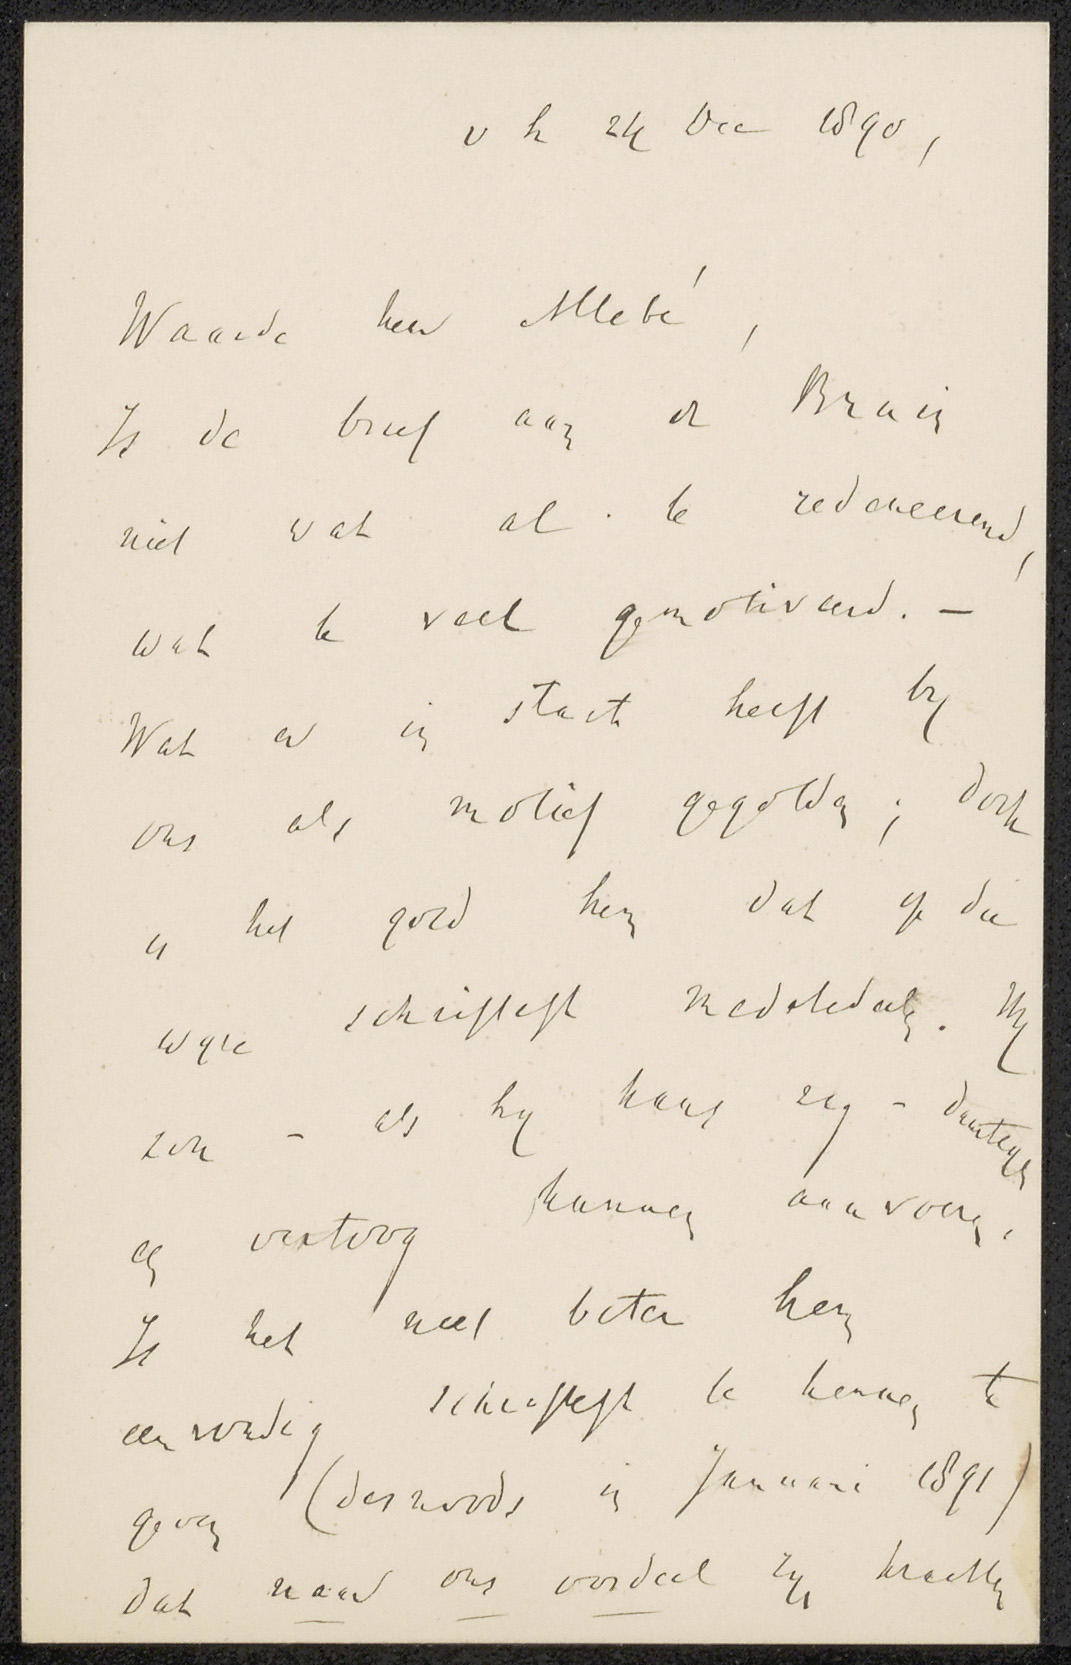 v h 24 Dec 1890,
Waarde heer Allebé,
Is de brief aan de Bruin
niet wat al te redeneerend,
wat te veel gemotiveerd. —
Wat er in staat heeft by
ons als motief gegolden; doch
is het goed hem dat op die
wyze schriftelyk medetedeelen. Hy
zou — als hy kans zag — daartegen
een vertoog kunnen aanvoeren.
Is het niet beter hem
eenvoudig schriftelyk te kennen te
geven (desnoods in Januari 1891)
dat naar ons oordeel zyn krachten